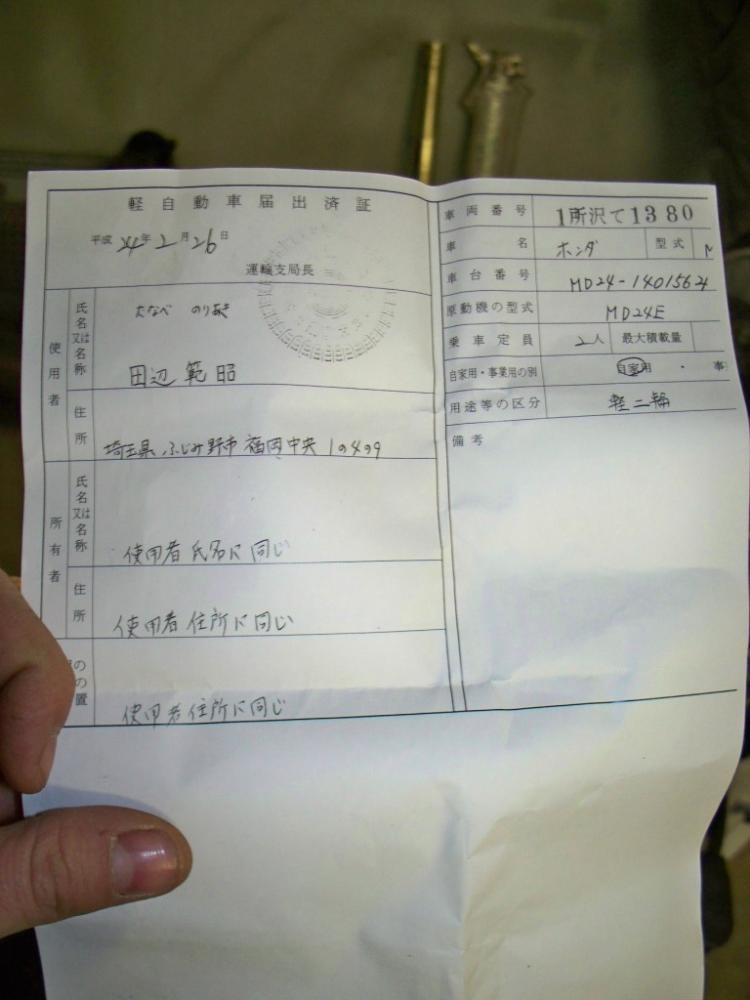 軽自動車届出済証
平成 24年 2月 26日
運輸支局長
使用者
氏名又は名称
たなべ のりあき
田辺 範昭
住所
埼玉県ふじみ野市福岡中央1の4の9
所有者
氏名又は名称
使用者氏名に同じ
住所
使用者住所に同じ
の
の
置
使用者住所に同じ
車両番号 1所沢て1380
車名 ホンダ 型式 M
車台番号 MD24-1401562
原動機の型式 MD24E
乗車定員 2人 最大積載量
自家用・事業用の別 自家用・事
用途等の区分 軽二輪
備考